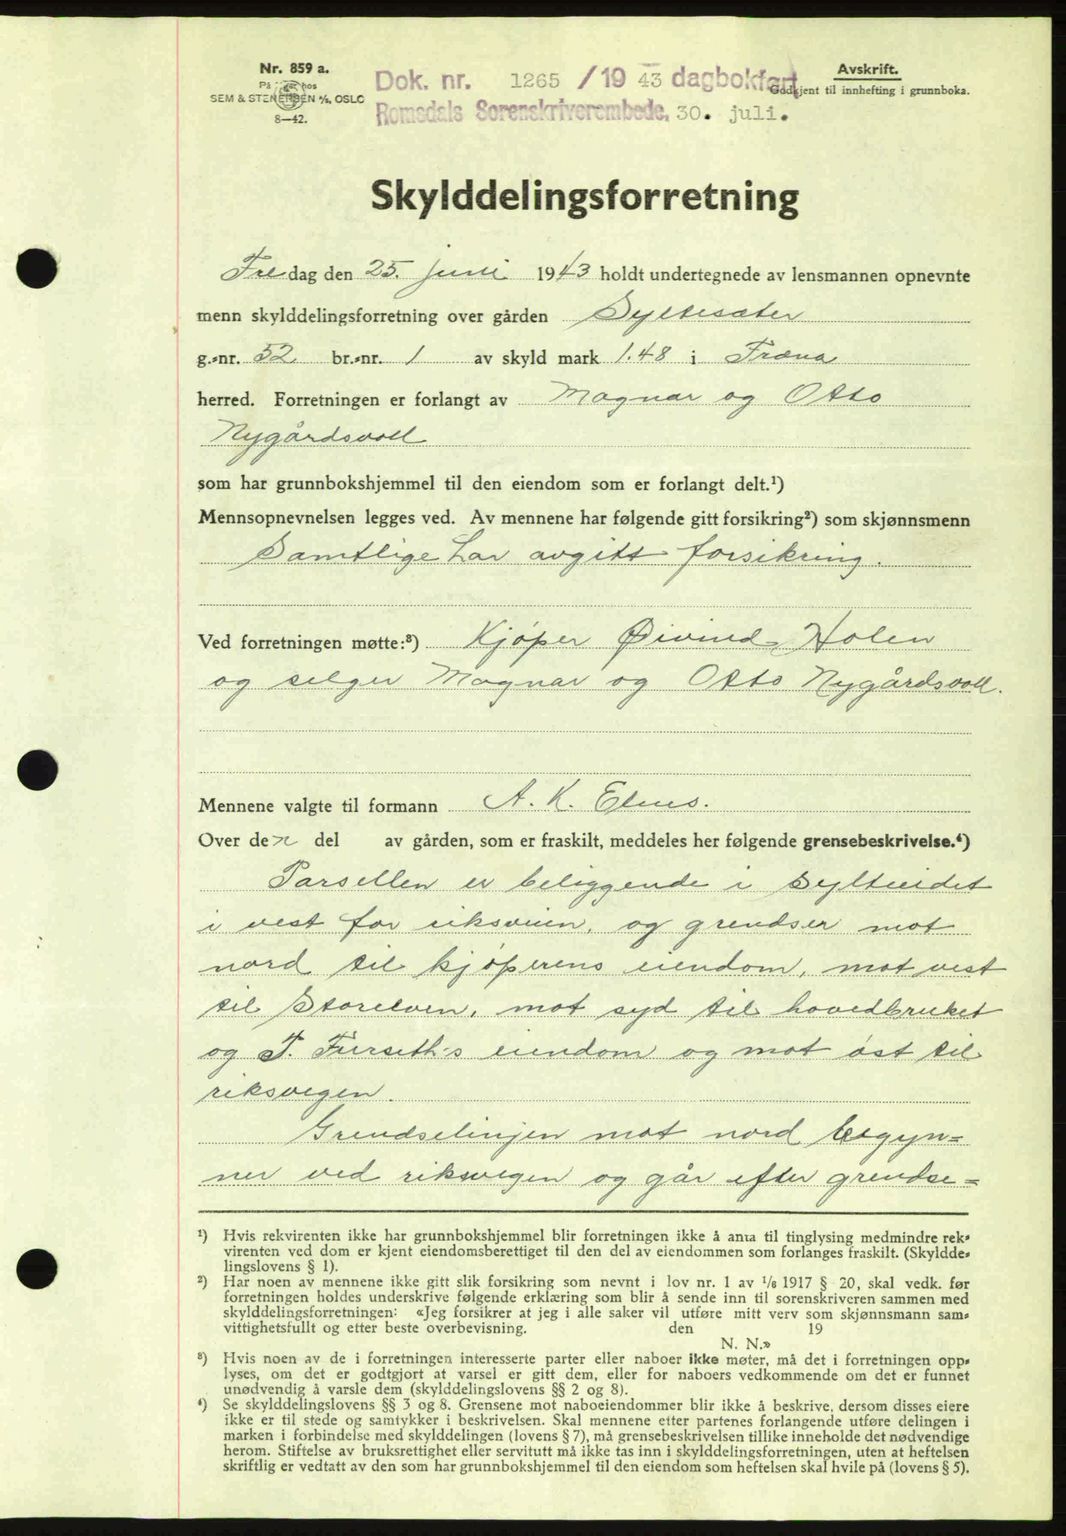 Nr. 859 a.
På lager hos
SEM & STENERSEN A/S, OSLO
8—42.
Dok. nr. 1265 /19 43 dagbokført
Romsdals Sorenskriverembede, 30. juli.
Avskrift.
Godkjent til innhefting i grunnboka.
Skylddelingsforretning
Fredag den 25. juni 1943 holdt undertegnede av lensmannen opnevnte
menn skylddelingsforretning over gården Syltesæter
g.-nr. 52 br.-nr. 1 av skyld mark 1.48 i Fræna
herred. Forretningen er forlangt av Magnar og Otto
Nygårdsvoll
som har grunnbokshjemmel til den eiendom som er forlangt delt.¹)
Mennsopnevnelsen legges ved. Av mennene har følgende gitt forsikring²) som skjønnsmenn
Samtlige har avgitt forsikring.
Ved forretningen møtte:³) Kjøper Øivind Holen
og selger Magnar og Otto Nygårdsvoll.
Mennene valgte til formann A. K. Elnes.
Over den del av gården, som er fraskilt, meddeles her følgende grensebeskrivelse.⁴)
Parsellen er beliggende i Sylteeidet
i vest for riksveien, og grendser mot
nord til kjøperens eiendom, mot vest
til Storelven, mot syd til hovedbruket
og T. Furseth's eiendom og mot øst til
riksvegen.
Grendselinjen mot nord begyn=
ner ved riksvegen og går efter grendse=
¹) Hvis rekvirenten ikke har grunnbokshjemmel blir forretningen ikke å anta til tinglysing medmindre rek-
virenten ved dom er kjent eiendomsberettiget til den del av eiendommen som forlanges fraskilt. (Skyldde-
lingslovens § 1).
²) Har noen av mennene ikke gitt slik forsikring som nevnt i lov nr. 1 av 1/6 1917 § 20, skal vedk. før
forretningen holdes underskrive følgende erklæring som blir å sende inn til sorenskriveren sammen med
skylddelingsforretningen: «Jeg forsikrer at jeg i alle saker vil utføre mitt verv som skjønnsmann sam-
vittighetsfullt og etter beste overbevisning. den 19
N. N.»
³) Hvis noen av de i forretningen interesserte parter eller naboer ikke møter, må det i forretningen opp-
lyses, om det er godtgjort at varsel er gitt dem, eller for naboers vedkommende om det er funnet
unødvendig å varsle dem (skylddelingslovens §§ 2 og 8).
⁴) Se skylddelingslovens §§ 3 og 8. Grensene mot naboeiendommer blir ikke å beskrive, dersom disses eiere
ikke er til stede og samtykker i beskrivelsen. Skal mennene etter partenes forlangende utføre delingen i
marken i forbindelse med skylddelingen (lovens § 7), må grensebeskrivelsen tillike inneholde det nødvendige
herom. Stiftelse av bruksrettighet eller servitutt må ikke tas inn i skylddelingsforretningen, uten at heftelsen
skriftlig er vedtatt av den som har grunnbokshjemmel til den eiendom som heftelsen skal hvile på (lovens § 5).